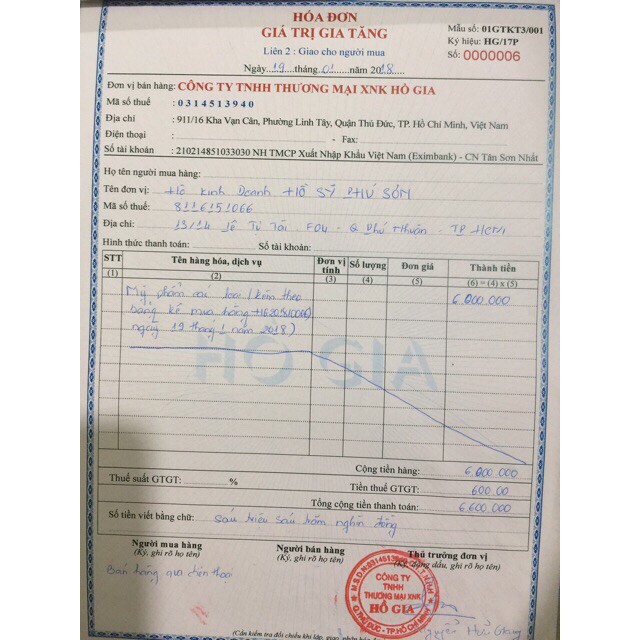 HÓA ĐƠN
GIÁ TRỊ GIA TĂNG
Liên 2 : Giao cho người mua
Ngày 19 tháng 01 năm 2018
Mẫu số: 01GTKT3/001
Ký hiệu: HG/17P
Số: 0000006
Đơn vị bán hàng: CÔNG TY TNHH THƯƠNG MẠI XNK HỒ GIA
Mã số thuế : 0314513940
Địa chỉ : 911/16 Kha Vạn Cân, Phường Linh Tây, Quận Thủ Đức, TP. Hồ Chí Minh, Việt Nam
Điện thoại : - Fax:
Số tài khoản : 210214851033030 NH TMCP Xuất Nhập Khẩu Việt Nam (Eximbank) - CN Tân Sơn Nhất
Họ tên người mua hàng:
Tên đơn vị: Hộ Kinh Doanh Hồ Sỹ Phú Sơn
Mã số thuế: 8116151066
Địa chỉ: 13/14 Tự F04 - Q Phú Nhuận - TP HCM
Hình thức thanh toán: Số tài khoản:
STT Tên hàng hóa, dịch vụ Đơn vị tính Số lượng Đơn giá Thành tiền
(1) (2) (3) (4) (5) (6) = (4) x (5)
Mỹ phẩm các loại (kèm theo 6.000.000
bảng kê mua hàng
ngày 19 tháng 1 năm 2018)
HO GIA
Cộng tiền hàng: 6.000.000
Thuế suất GTGT: % Tiền thuế GTGT: 600.00
Tổng cộng tiền thanh toán: 6.600.000
Số tiền viết bằng chữ: sáu triệu sáu trăm nghìn đồng
Người mua hàng Người bán hàng Thủ trưởng đơn vị
(Ký, ghi rõ họ tên) (Ký, ghi rõ họ tên) (Ký, đóng dấu, ghi rõ họ tên)
Bán hàng qua điện thoại
CÔNG TY
TNHH
THƯƠNG MẠI XNK
HỒ GIA
Q.THỦ ĐỨC - TP.HỒ CHÍ MINH